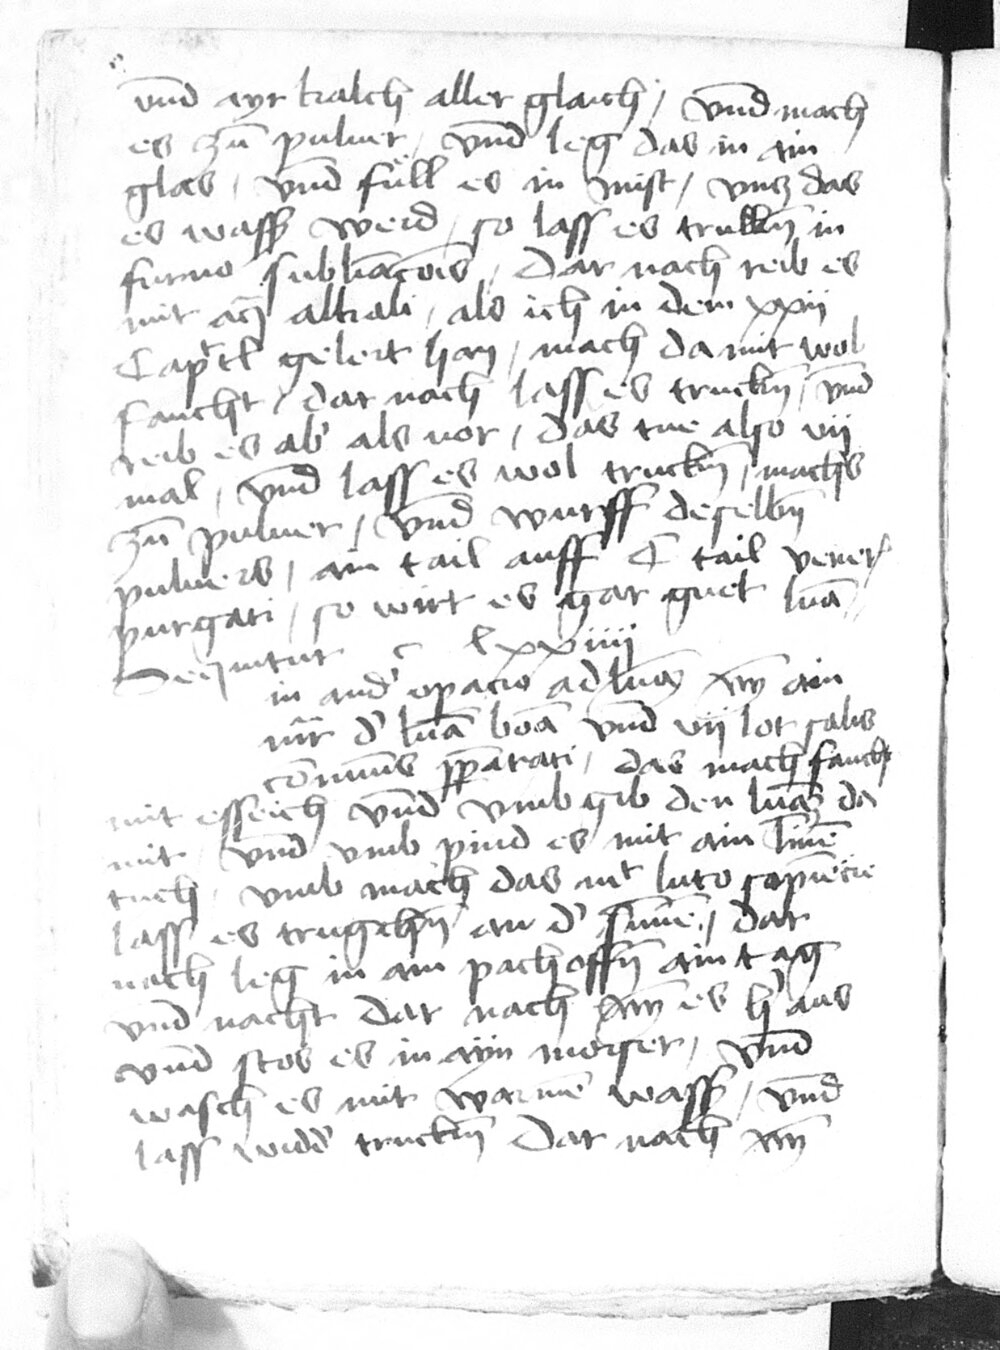 vnd ayr kalch aller glaich / vnd mach
es zū puluer / vnd leg das in ain
glas / vnd füll es in mist / vnz das
es wasser werd / so lass es trukkn̄ in
furno sublīacōis / Dar nach reib es
mit aq̄ alkali / als ich in dem xxii
Capitl gelert han / mach da mit wol
faucht / dar nach lass es truckn̄ / vnd
reib es ab' als vor / das tue also vij
mal / vnd lass es wol truckn̄ / machs
zū puluer / vnd wurff deselbn̄
puluers / ain tail auff C tail vener'
purgati / so wirt es gar guet lūā
Sequitur c lxxiiij
in and' opacio ad lūā xm̄ ain
mr̄ d' lūā boā vnd vij lot salis
cōmunis p̄parati / das mach faucht
mit esseich vnd vmb gib den lūā da
mit / vnd vmb pind es mit ain līnē
tuch / vmb mach das mt luto sapiēcie
lass es trugekn̄ an d' sunnē / dar
nach leg in ain pachoffn̄ ain tag
vnd nacht Dar nach xm̄ es h' aus
vnd stos es in ayn morser / vnd
wasch es mit warmē wasser / vnd
lass wid' truckn̄ Dar nach xm̄